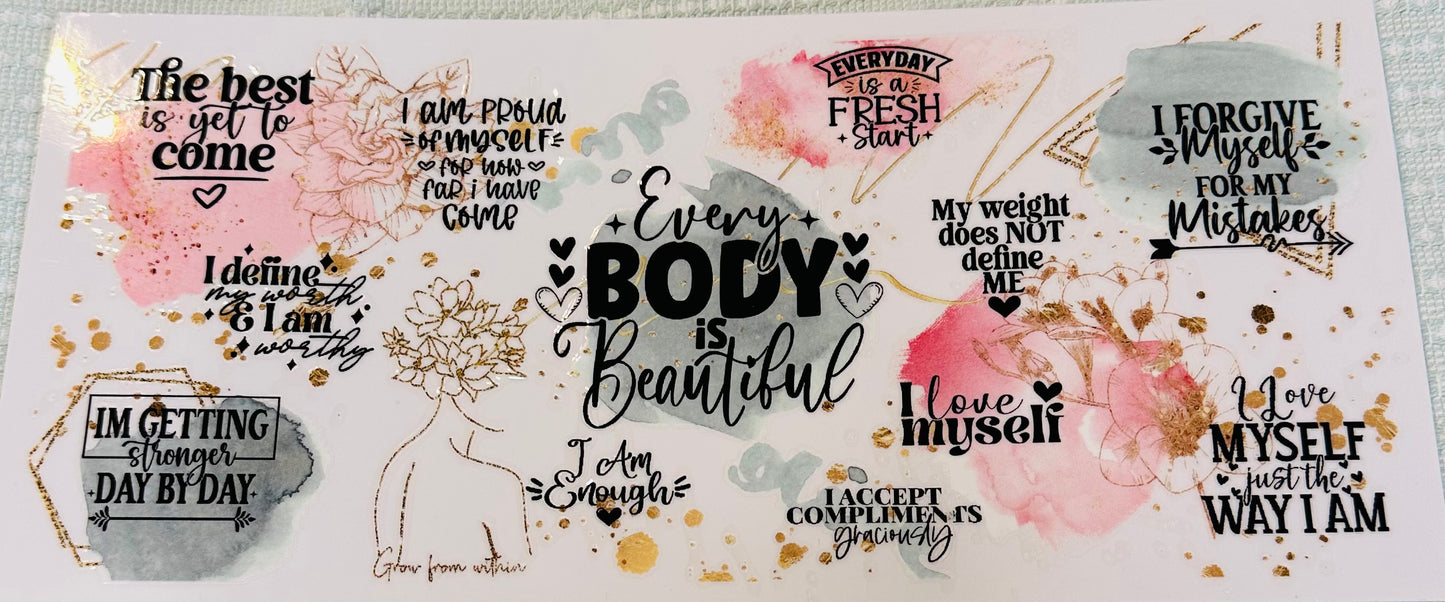 The best
is yet to
come
I AM PROUD
OF MYSELF
FOR HOW
FAR i HAVE
COME
EVERYDAY
is a
FRESH
Start
I FORGIVE
Myself
FOR MY
Mistakes
Every
BODY
is
Beautiful
My weight
does NOT
define
ME
I define
my worth
& I am
worthy
IM GETTING
stronger
DAY BY DAY
Grow from within
I Am
Enough
I love
myself
I ACCEPT
COMPLIMENTS
graciously
I Love
MYSELF
just the
WAY I AM